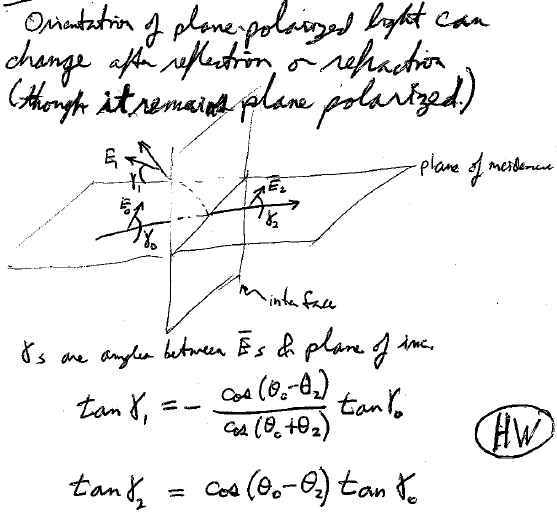 Orientation of plane-polarized light can
change after reflection or refraction
(though it remains plane polarized.)
Ē₁
γ₁
Ē₀
γ₀
Ē₂
γ₂
plane of incidence
interface
γs are angles between Ēs & plane of inc.
tan γ₁ = - cos(θ₀-θ₂) / cos(θ₀+θ₂) tan γ₀
HW
tan γ₂ = cos(θ₀-θ₂) tan γ₀